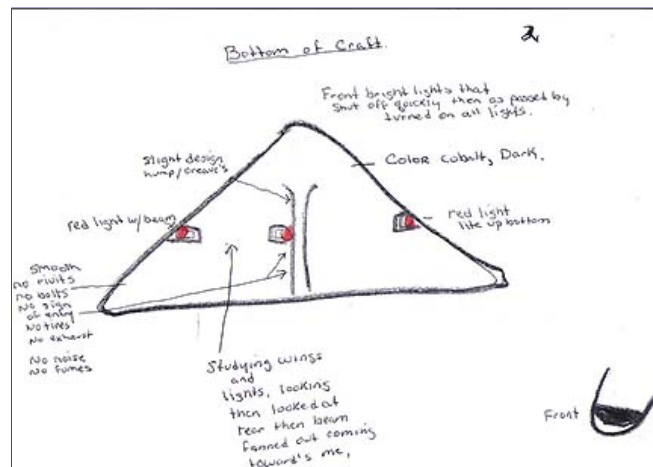 2
Bottom of Craft.
Front bright lights that
shut off quickly then as passed by
turned on all lights.
Slight design
hump/creave's
Color cobalt, Dark.
red light w/beam
red light
lite up bottom
Smooth
no rivits
no bolts
No sign
of entry
No tires
No exhaust
No noise
No fumes
Studying wings
and
lights, looking
then looked at
rear then beam
fanned out coming
toward's me,
Front